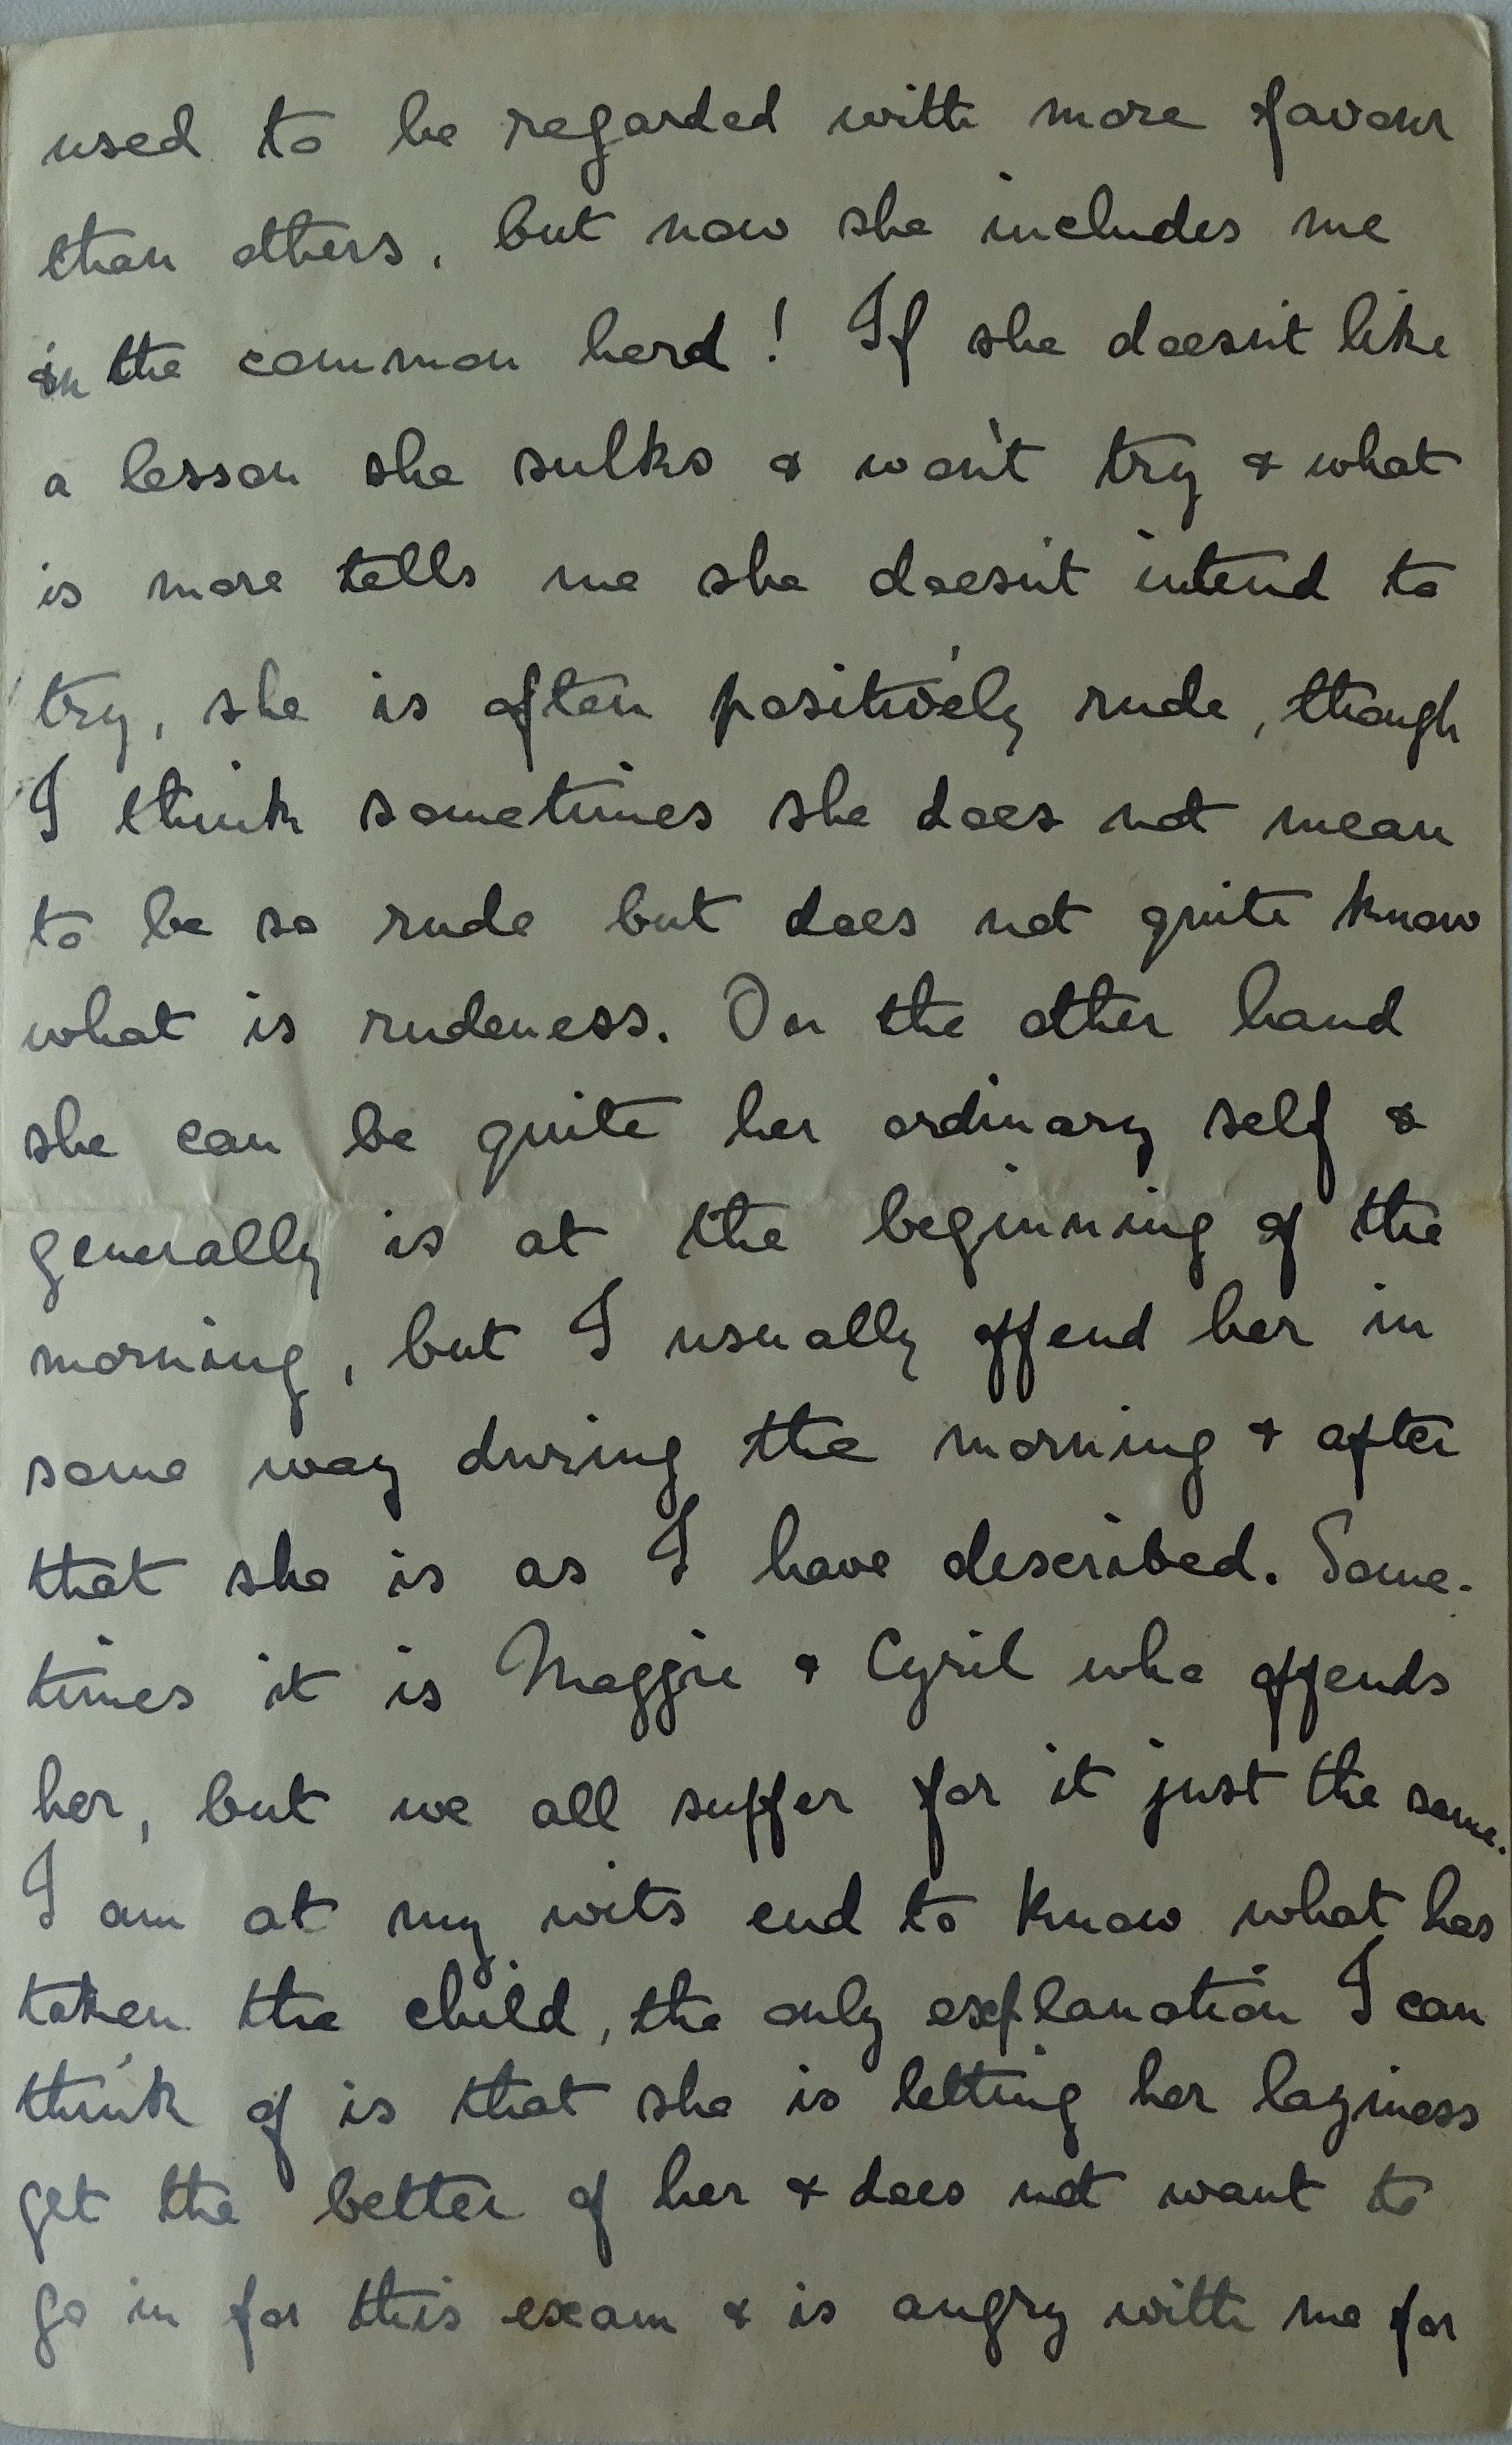 used to be regarded with more favour
than others, but now she includes me
in the common herd! If she doesn't like
a lesson she sulks & won't try & what
is more tells me she doesn't intend to
try, she is often positively rude, though
I think sometimes she does not mean
to be so rude but does not quite know
what is rudeness. On the other hand
she can be quite her ordinary self &
generally is at the beginning of the
morning, but I usually offend her in
some way during the morning & after
that she is as I have described. Some-
times it is Maggie & Cyril who offends
her, but we all suffer for it just the same.
I am at my wits end to know what has
taken the child, the only explanation I can
think of is that she is letting her laziness
get the better of her & does not want to
go in for this exam & is angry with me for